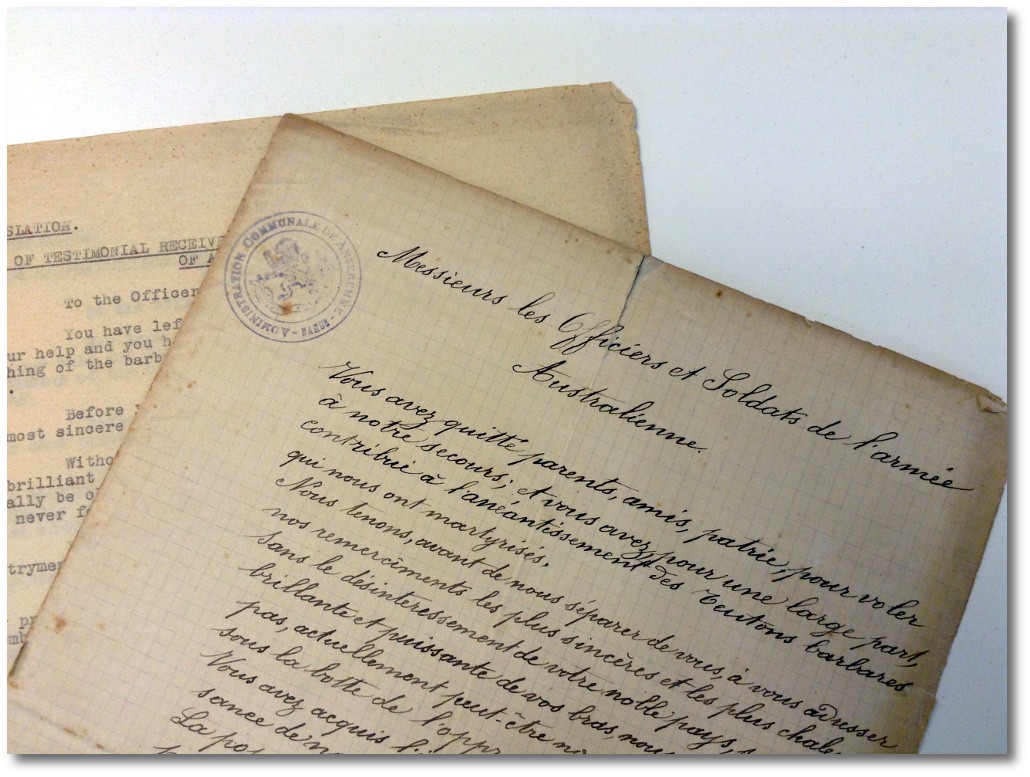 SLATION.
OF TESTIMONIAL RECEIV
OF A
To the Officer
You have lef
ur help and you h
hing of the barb
Before
most sincere
Witho
brilliant
ally be o
never f
trymen
ADMINISTRATION COMMUNALE DE
Messieurs les Officiers et Soldats de l'armée
Australienne.
Vous avez quitté parents, amis, patrie, pour voler
à notre secours; et vous avez, pour une large part,
contribué à l'anéantissement des Teutons barbares
qui nous ont martyrisés.
Nous tenons, avant de nous séparer de vous, à vous adresser
nos remerciments les plus sincères et les plus chale
Sans le désintéressement de votre noble pays, s
brillante et puissante de vos bras, nou
pas, actuellement peut-être n
sous la botte de l'oppr
Vous avez acquis
sance de n
La po